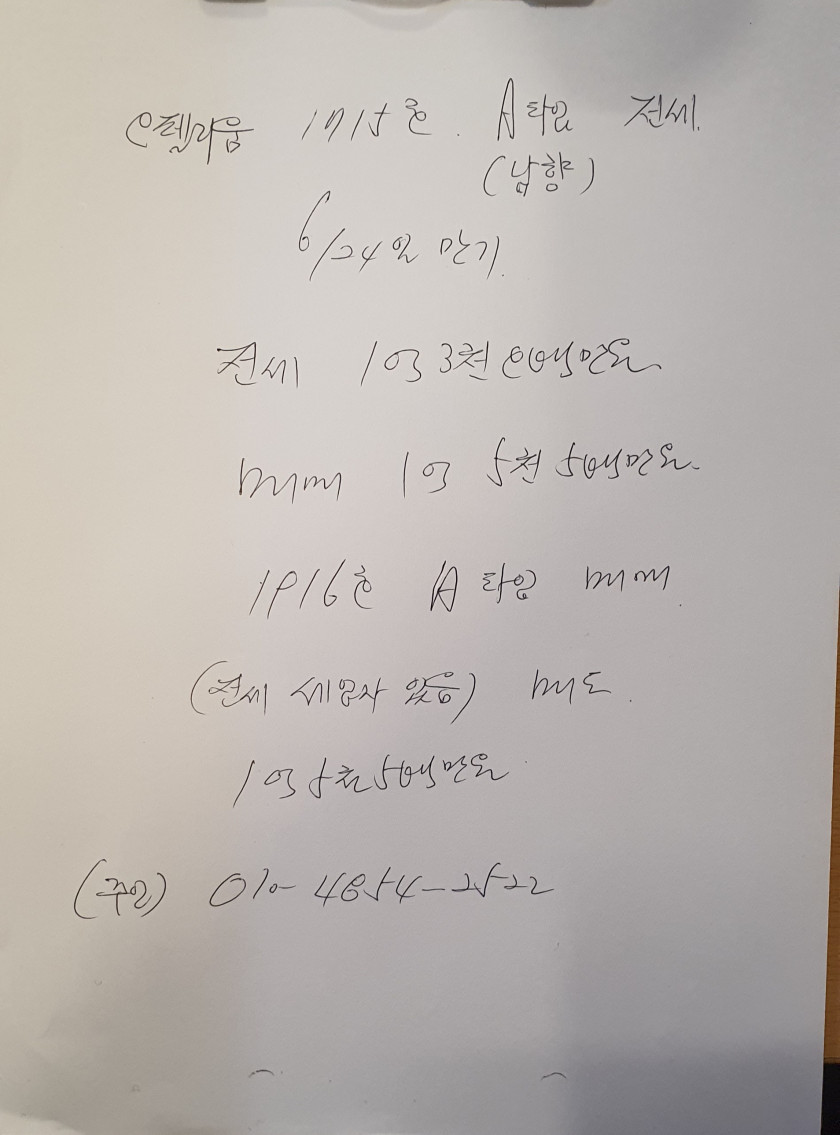 e젤리움 1715호. A타입 전세.
(남향)
6/24일 만기.
전세 1억 3천 백만원.
매매 1억 5천 5백만원.
1916호 A 타입 매매.
(전세 세입자 있음) 매도.
1억 5천 5백만원
(주인) 010-4854-2522